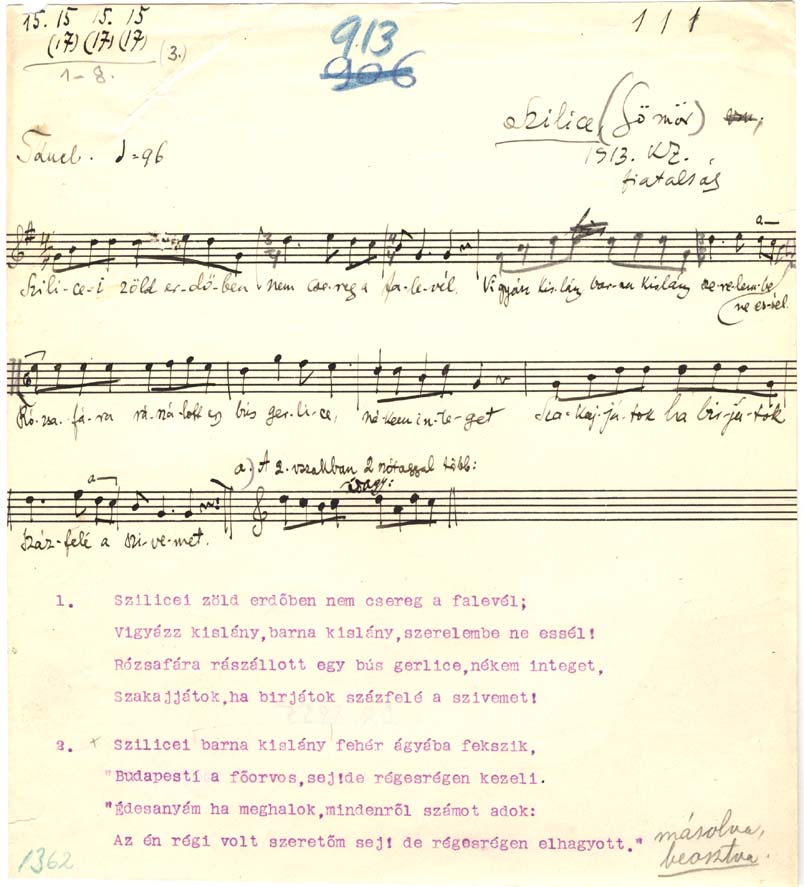 15. 15 15. 15
(17) (17) (17) (3.)
1-8.
913
906
1 1 1
Szilice, (Gömör)
1913. KZ.
fiatalság
Táncl. = 96
a.
Szili-ce-i zöld er-dő-ben nem cse-reg a fa-le-vél. Vigyázz kis-lány bar-na kislány sze-re-lem-be
ne es-sél.
Ró-zsa-fá-ra rá-szá-lott egy bús ger-li-ce, né-kem in-te-get Sza-kaj-já-tok ha bir-já-tok
a.
a.) A 2. vszakban 2 szótaggal több:
vagy:
száz-felé a szi-ve-met.
1. Szilicei zöld erdőben nem csereg a falevél;
Vigyázz kislány,barna kislány,szerelembe ne essél!
Rózsafára rászállott egy bús gerlice,nékem integet,
Szakajjátok,ha birjátok százfelé a szivemet!
2. Szilicei barna kislány fehér ágyába fekszik,
"Budapesti a főorvos,sej!de régesrégen kezeli.
"Édesanyám ha meghalok,mindenről számot adok:
Az én régi volt szeretőm sej! de régesrégen elhagyott."
másolva,
beosztva.
1362